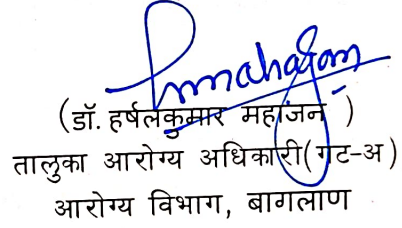 (डॉ. हर्षलकुमार महाजन )
तालुका आरोग्य अधिकारी(गट-अ)
आरोग्य विभाग, बागलाण